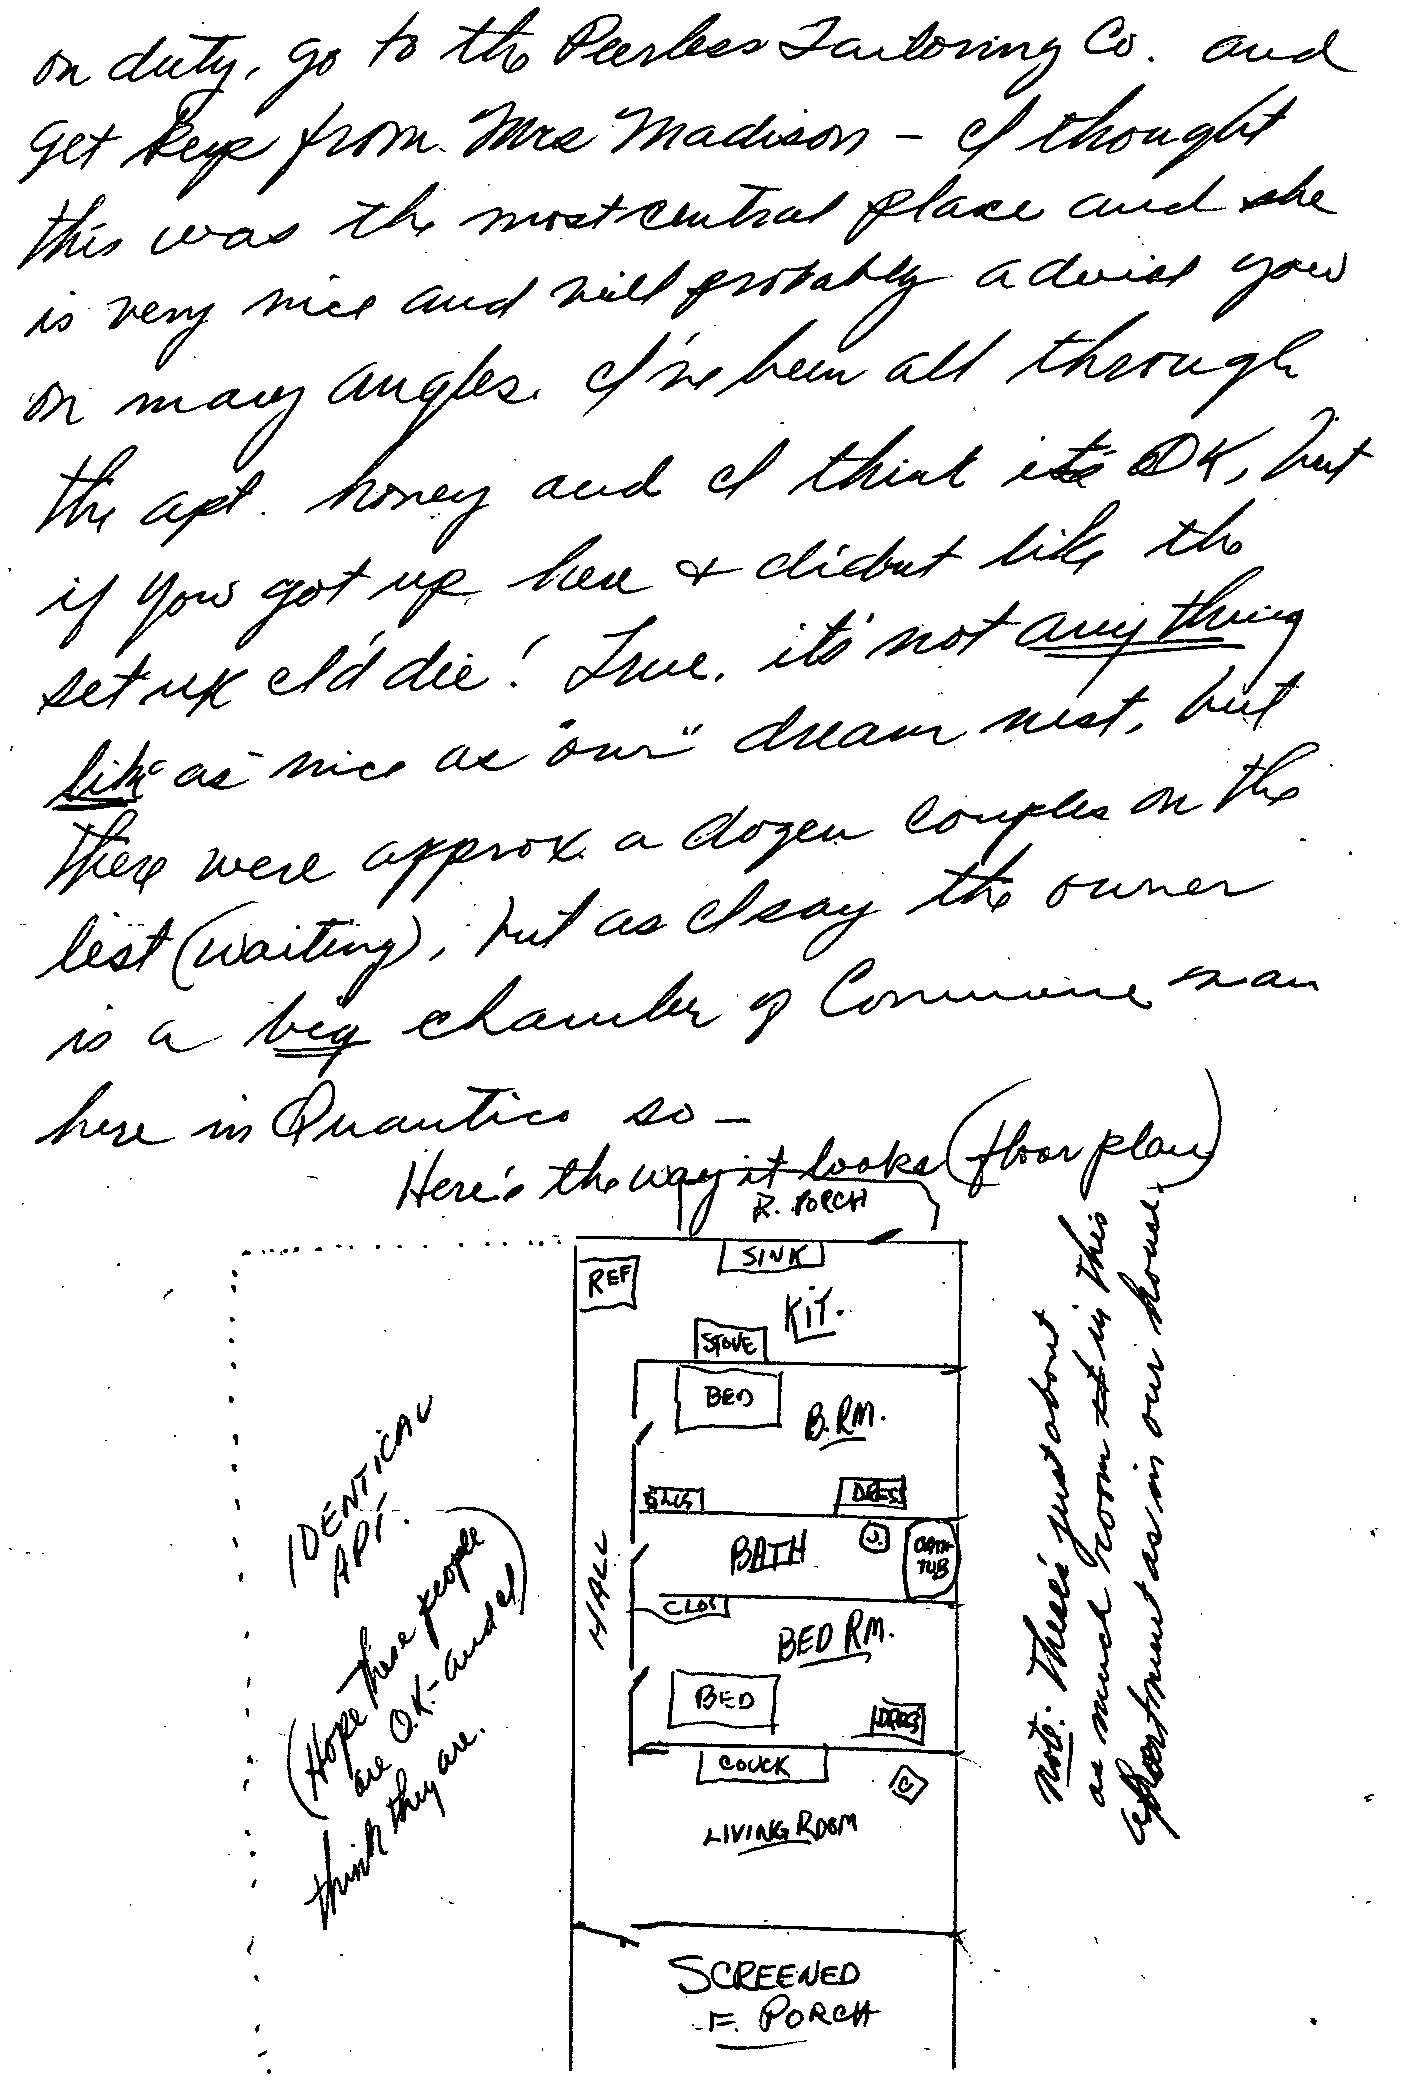 on duty, go to the Peerless Tailoring Co. and
get keys from Mrs Madison - I thought
this was the most central place and she
is very nice and will probably advise you
on many angles. I've been all through
the apt. honey and I think its OK, but
if you got up here & didnt like the
set up I'd die! True, it's not any thing
like as nice as "our" dream nest, but
there were approx. a dozen couples on the
list (waiting), but as I say the owner
is a big chamber of Commerce man
here in Quantico so -
Here's the way it looks (floor plan)
R. PORCH
SINK
REF
KIT.
STOVE
BED
B. RM.
DRES
BATH
BATH
TUB
HALL
CLOS
BED RM.
BED
DRES
COUCK
C
LIVING ROOM
SCREENED
F. PORCH
IDENTICAL
APT.
(Hope these people
are O.K. - and I)
think they are.
note: There's just about
as much room in this
apartment as in our house.